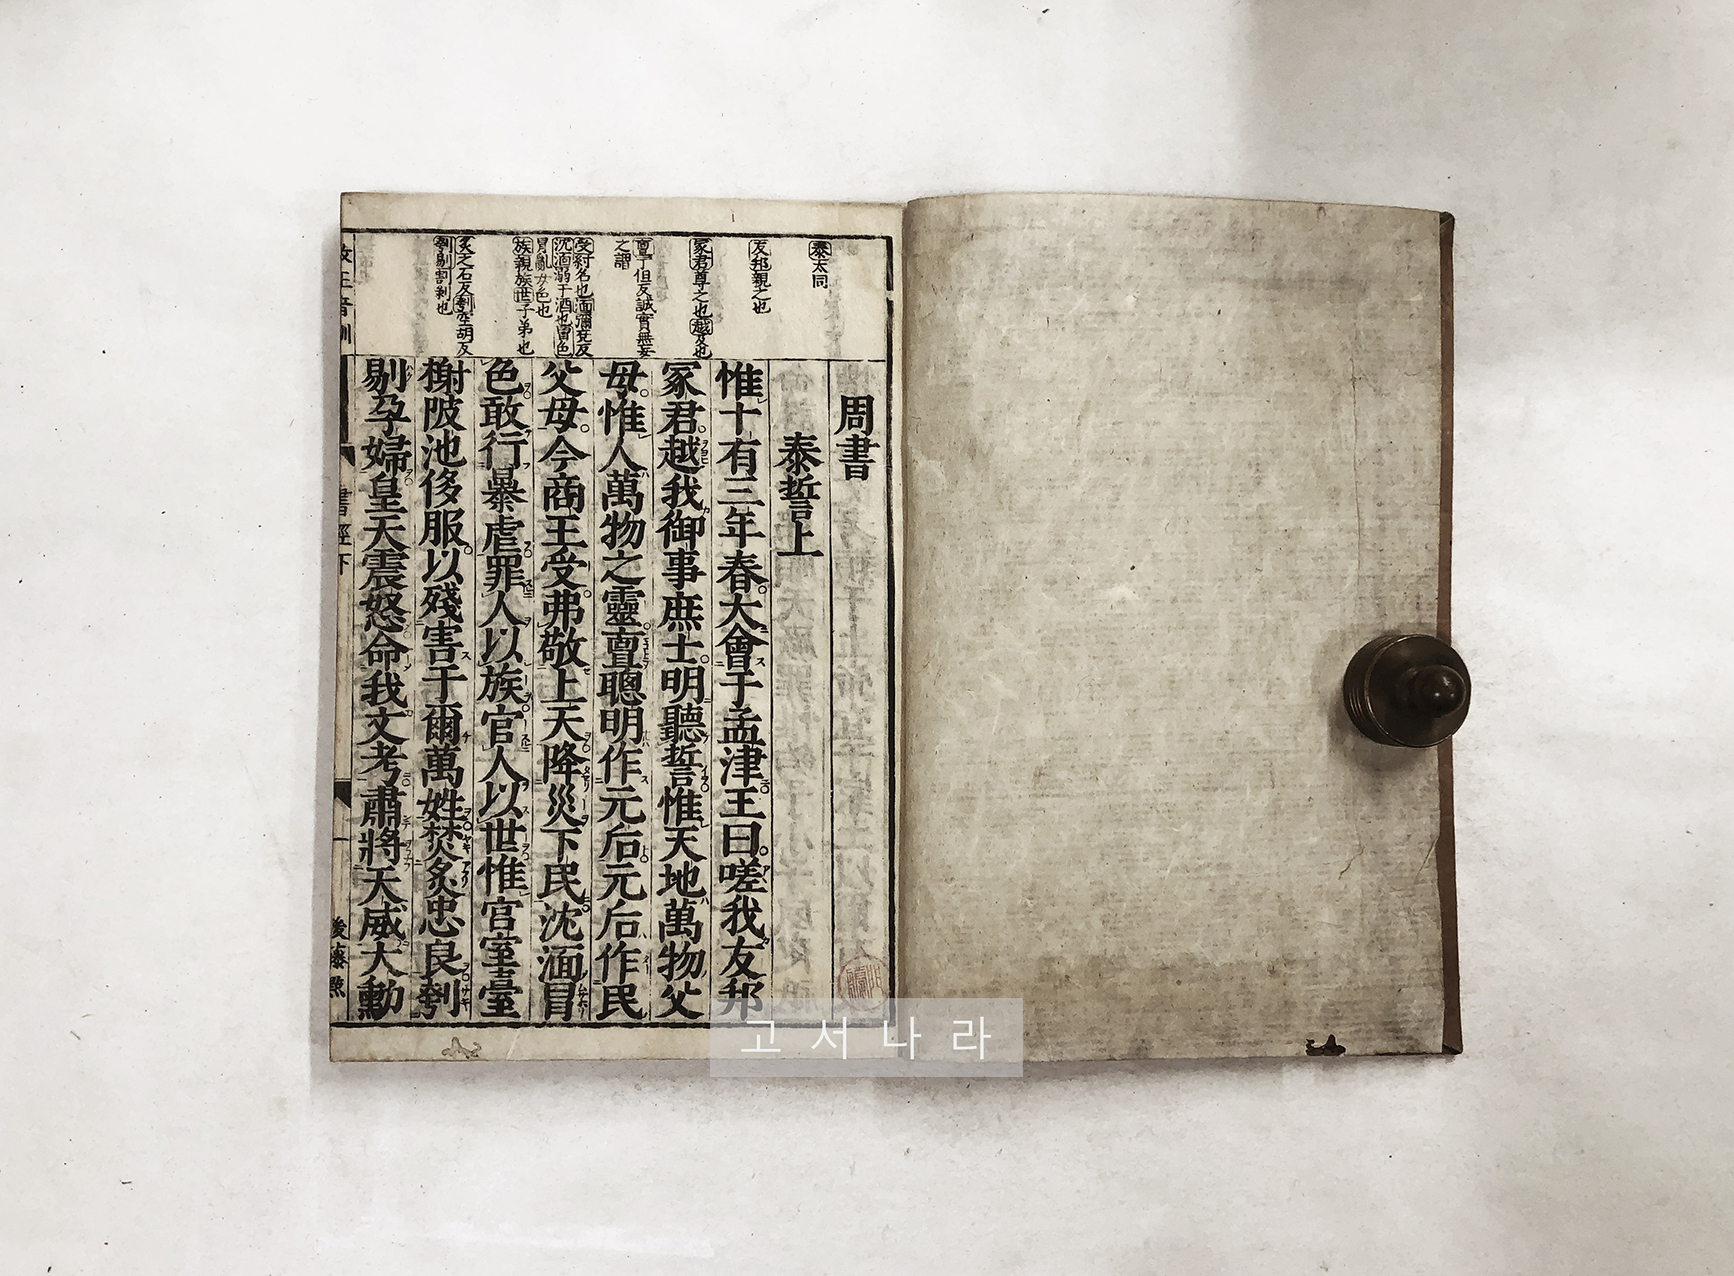 周書
泰誓上
惟十有三年春大會于孟津王曰嗟我友邦
冢君越我御事庶士明聽誓惟天地萬物父
母惟人萬物之靈亶聰明作元后元后作民
父母今商王受弗敬上天降災下民沈湎冒
色敢行暴虐罪人以族官人以世惟宮室臺
榭陂池侈服以殘害于爾萬姓焚炙忠良刳
剔孕婦皇天震怒命我文考肅將天威大勳
泰太同
友邦親之也
冢君尊之也越及也
亶丁但反誠實無妄
之謂
受紂名也湎彌兗反
沈湎溺于酒也冒色
冒亂女色也
族親族世子弟也
炙之石反刳空胡反
刳剔割剝也
書經下
一
後藤點
고서나라